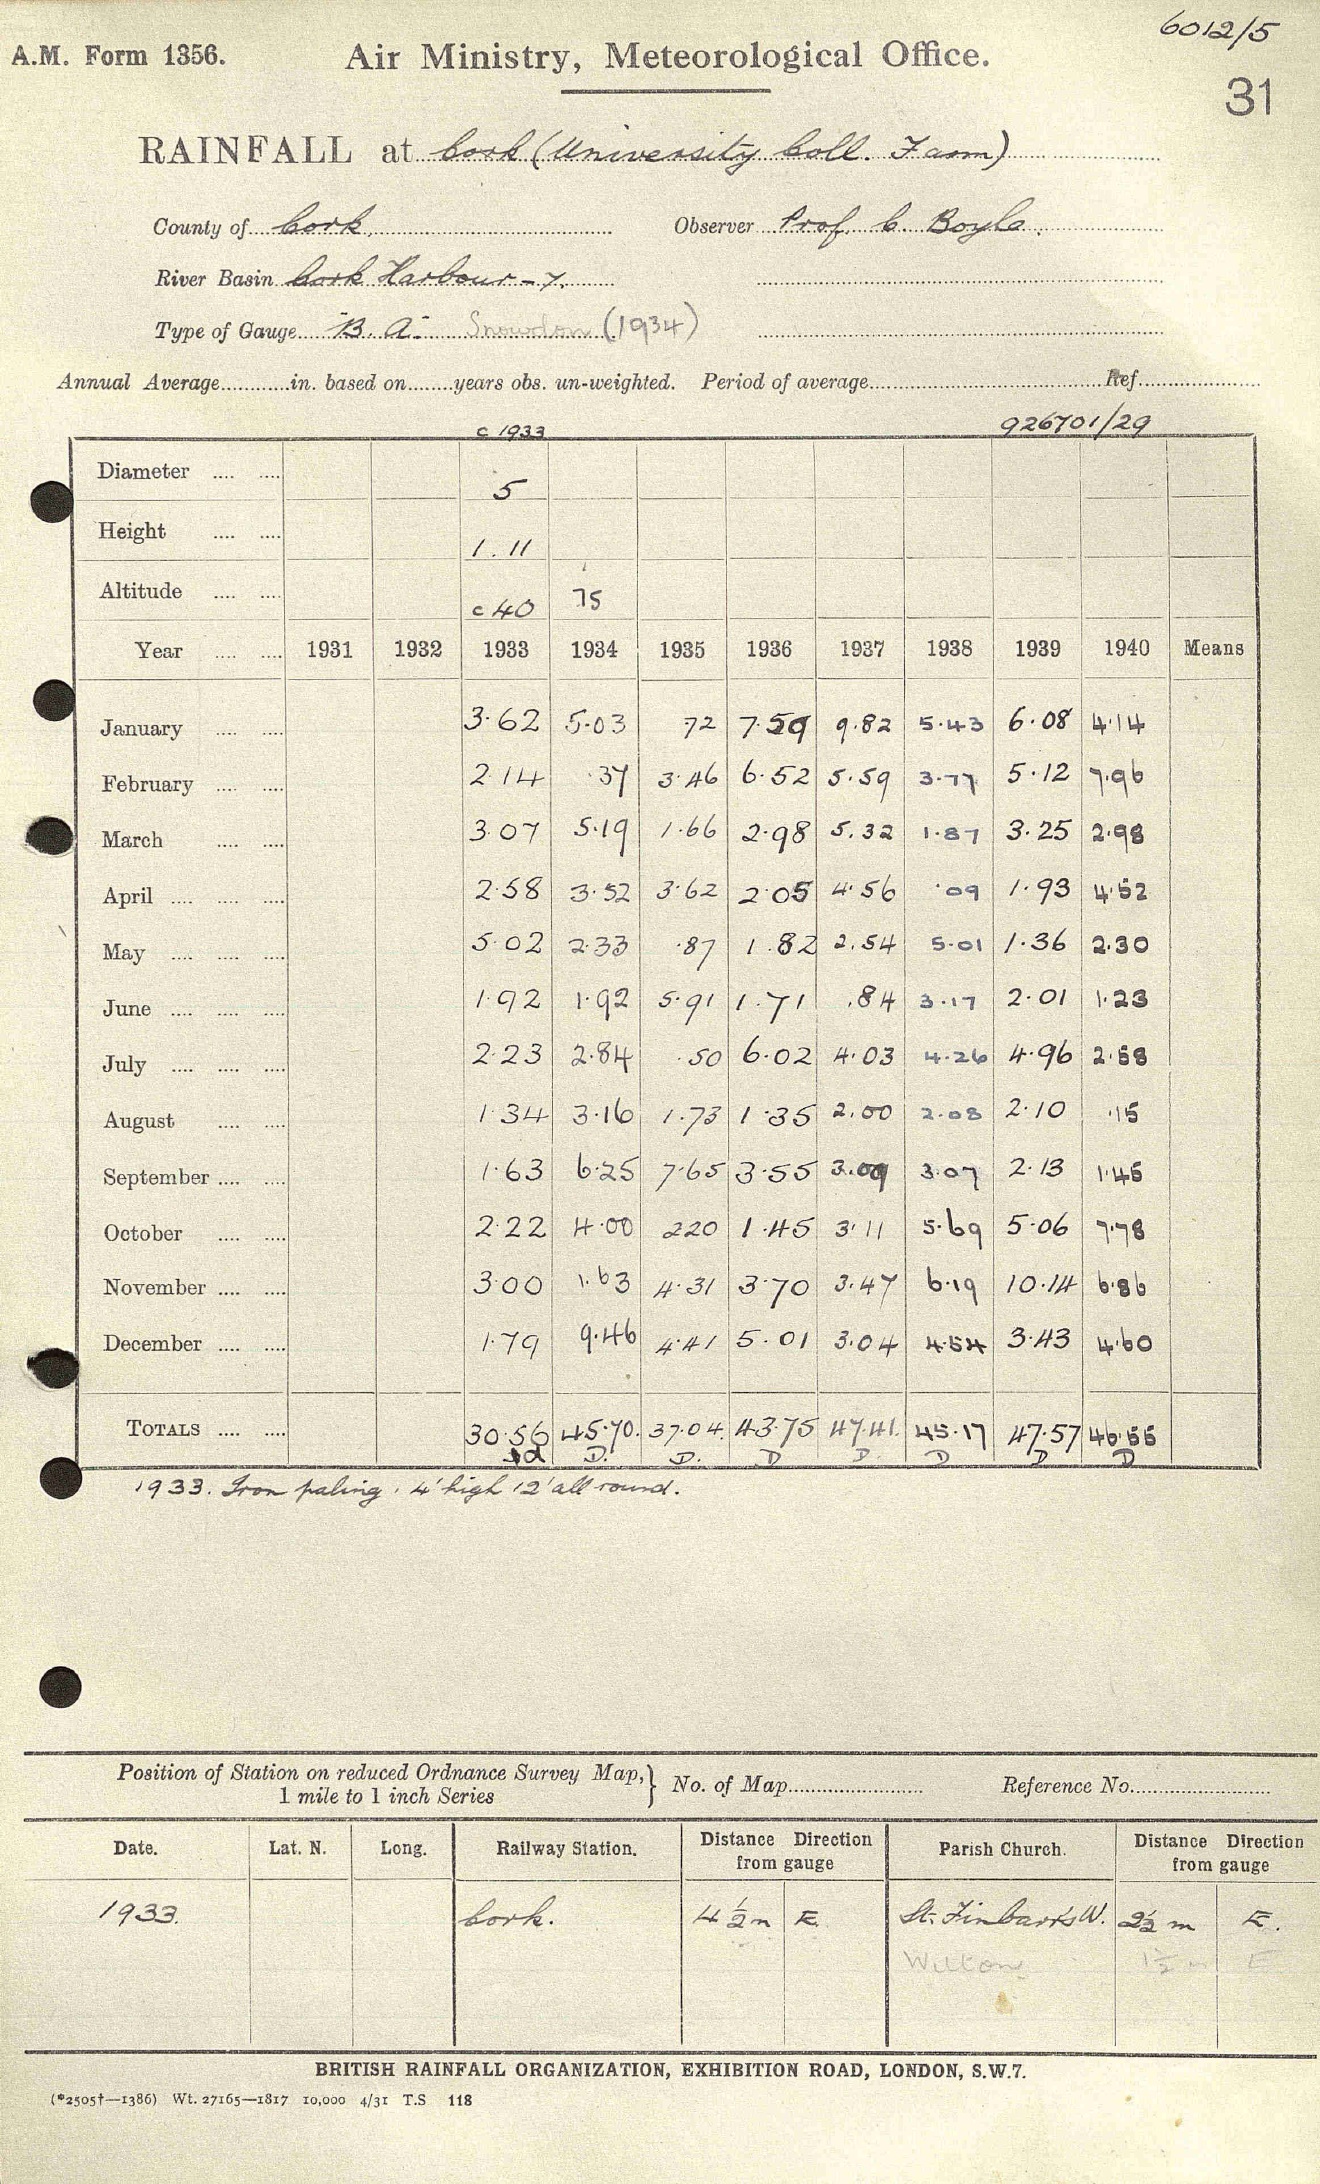 6012/5
A.M. Form 1356. Air Ministry, Meteorological Office.
31
RAINFALL at Cork (University Coll. Farm)
County of Cork. Observer Prof. C. Boyle.
River Basin Cork Harbour - 7.
Type of Gauge "B. A." Snowdon (1934)
Annual Average............in. based on........years obs. un-weighted. Period of average............ Ref............
c 1933 926701/29
Diameter .... .... 5
Height .... .... 1.11
Altitude .... .... c 40 75
Year .... .... 1931 1932 1933 1934 1935 1936 1937 1938 1939 1940 Means
January .... .... 3.62 5.03 72 7.59 9.82 5.43 6.08 4.14
February .... .... 2.14 .37 3.46 6.52 5.59 3.77 5.12 7.96
March .... .... 3.07 5.19 1.66 2.98 5.32 1.87 3.25 2.98
April .... .... .... 2.58 3.52 3.62 2.05 4.56 .09 1.93 4.52
May .... .... .... 5.02 2.33 .87 1.82 2.54 5.01 1.36 2.30
June .... .... .... 1.92 1.92 5.91 1.71 .84 3.17 2.01 1.23
July .... .... .... 2.23 2.84 .50 6.02 4.03 4.26 4.96 2.58
August .... .... 1.34 3.16 1.73 1.35 2.00 2.08 2.10 .15
September .... .... 1.63 6.25 7.65 3.55 3.09 3.07 2.13 1.45
October .... .... 2.22 4.00 220 1.45 3.11 5.69 5.06 7.78
November .... .... 3.00 1.63 4.31 3.70 3.47 6.19 10.14 6.86
December .... .... 1.79 9.46 4.41 5.01 3.04 4.54 3.43 4.60
TOTALS .... .... 30.56 45.70. 37.04. 43.75 47.41. 45.17 47.57 46.55
D. D. D D. D D D
1933. Iron paling. 4' high 12' all round.
Position of Station on reduced Ordnance Survey Map, } No. of Map............ Reference No............
1 mile to 1 inch Series
Date. Lat. N. Long. Railway Station. Distance Direction from gauge Parish Church. Distance Direction from gauge
1933. Cork. 4 1/2 m E. St. Finbarr's W. 2 1/2 m E.
Wilton 1 1/2 m E
BRITISH RAINFALL ORGANIZATION, EXHIBITION ROAD, LONDON, S.W.7.
(*2505†—1386) Wt. 27165—1817 10,000 4/31 T.S 118